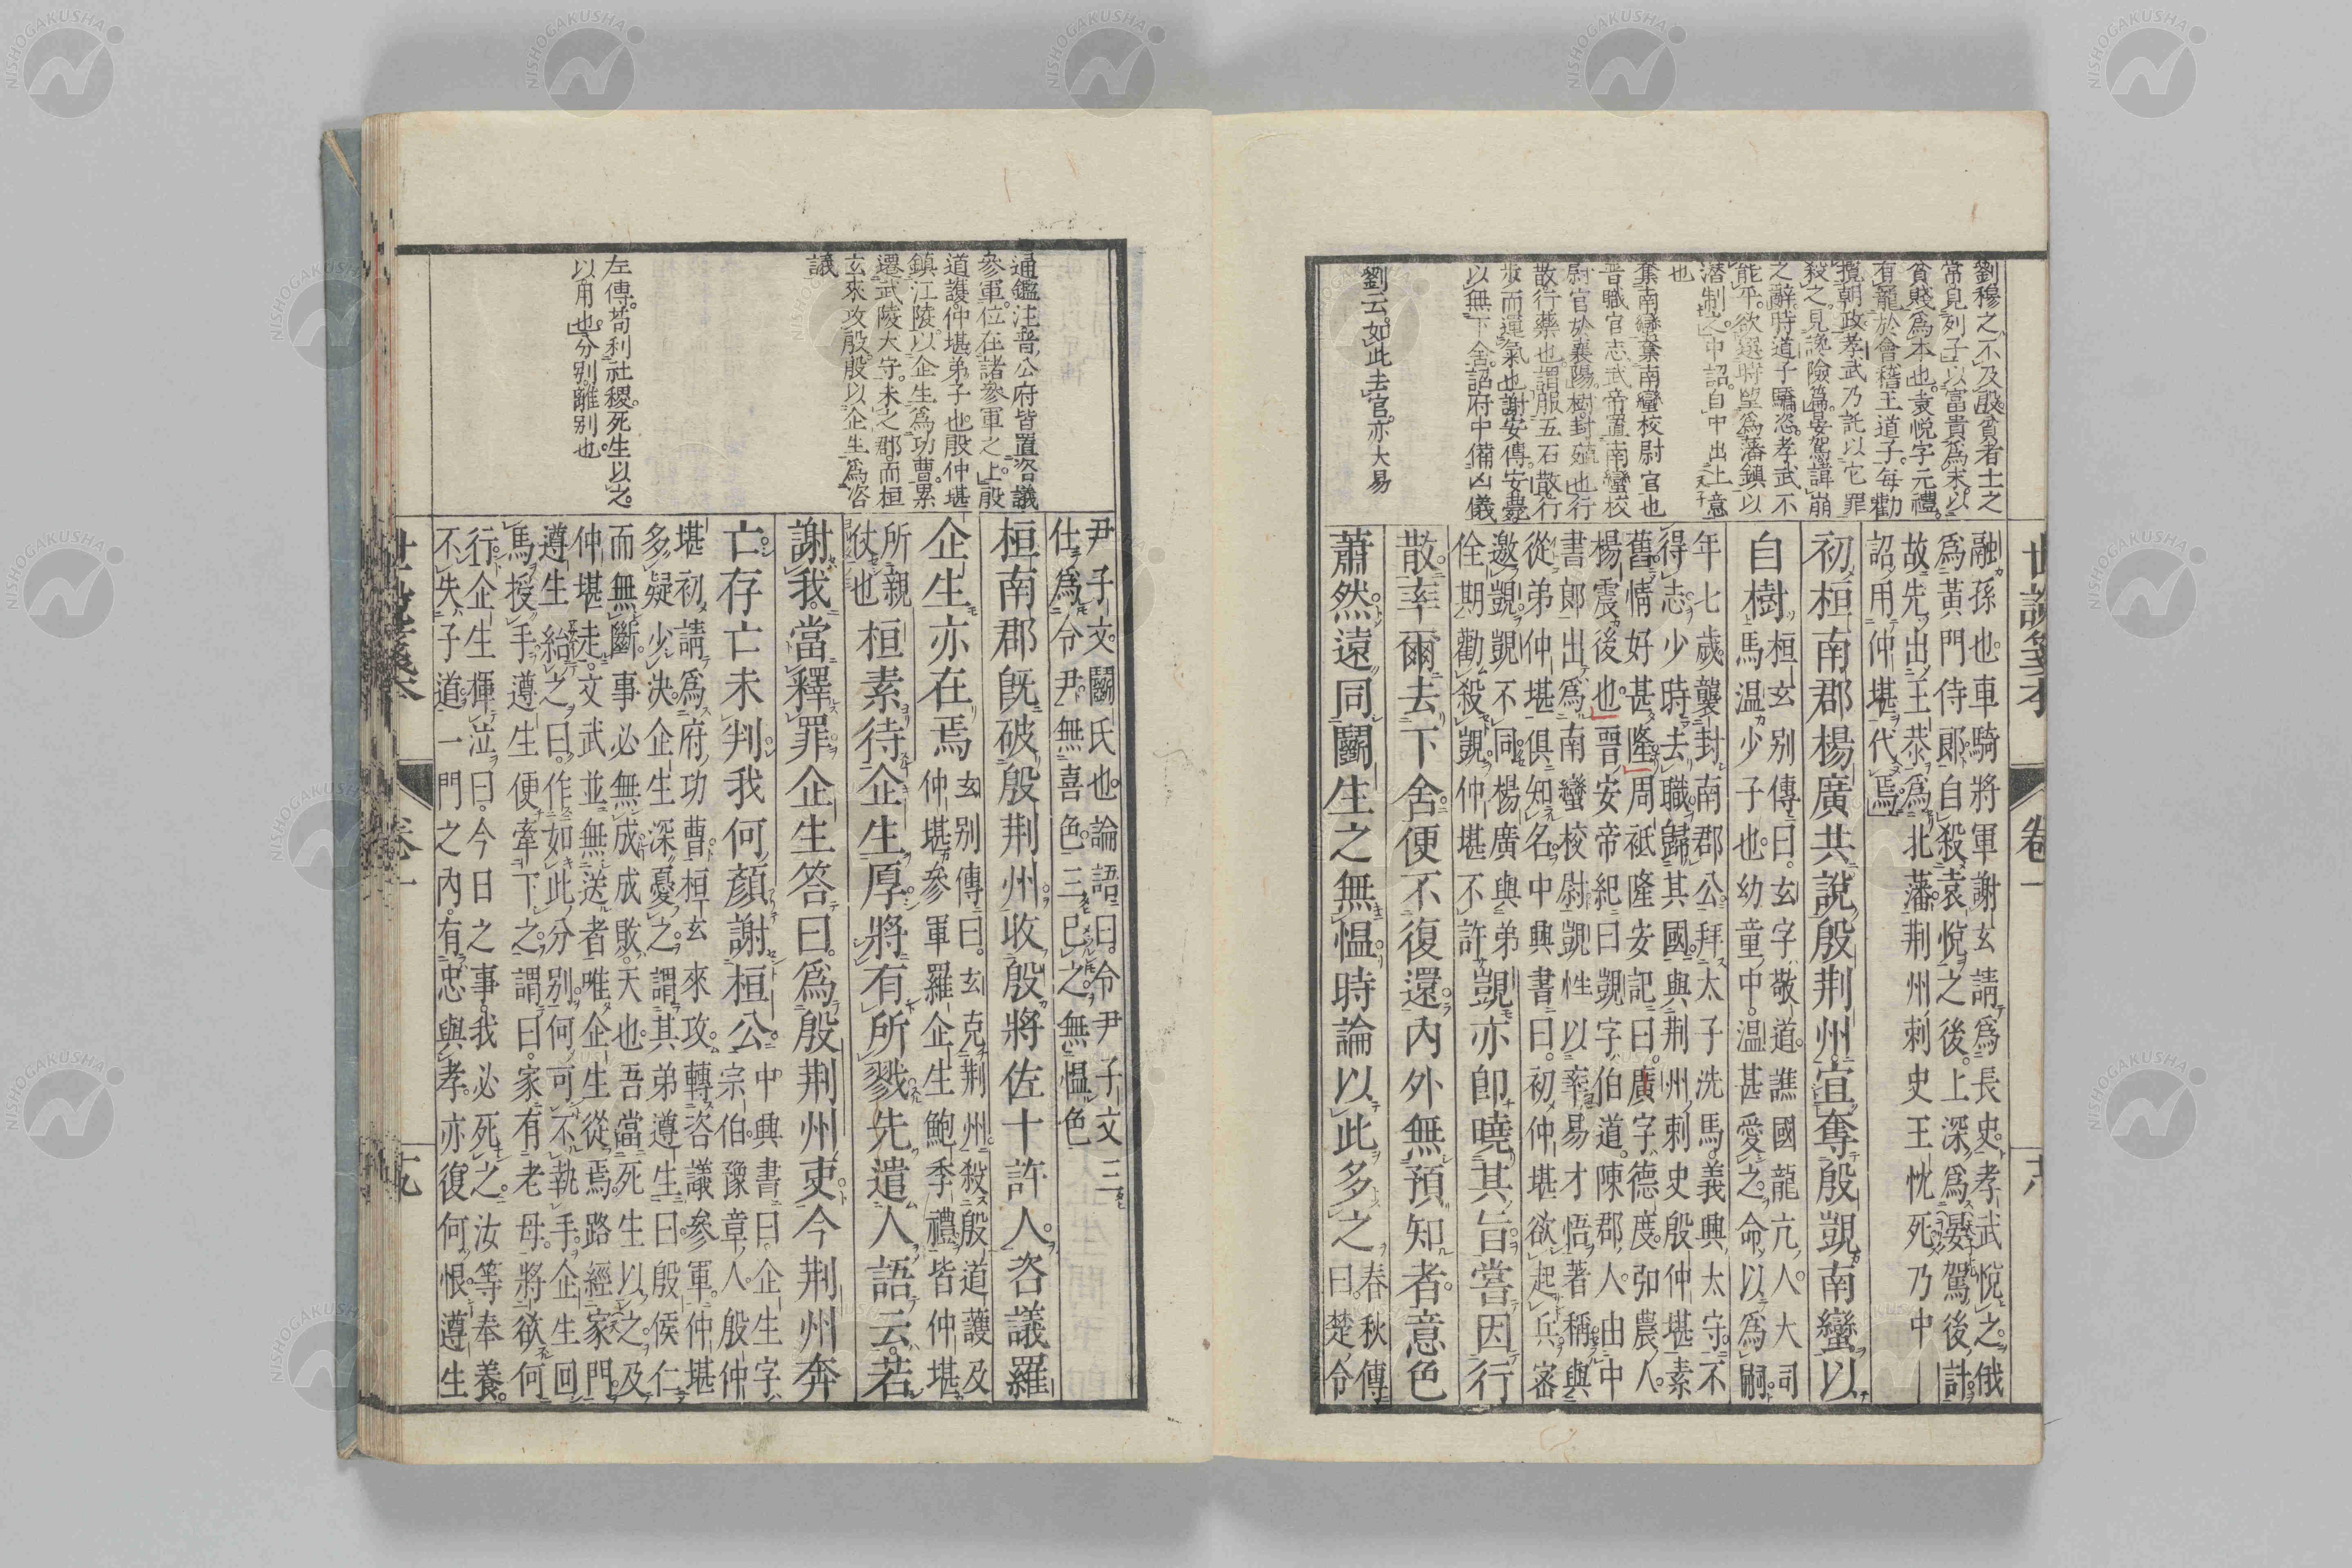 劉穆之不及殷貧者士之
常見列子以富貴爲末以
貧賤爲本也袁悅字元禮
有寵於會稽王道子每勸
攬朝政孝武乃託以它罪
殺之見讒險篇晏駕諱崩
之辭時道子驕恣孝武不
能平欲選時望爲藩鎮以
潛制之中詔自中出上意
也
棄南蠻棄南蠻校尉官也
晉職官志武帝置南蠻校
尉官於襄陽樹封殖也行
散行藥也謂服五石散行
步而運氣也謝安傳安
以無下舍詔府中備凶儀
劉云如此去官亦大易
融孫也車騎將軍謝玄請爲長史孝武悅之俄
爲黃門侍郎自殺袁悅之後上深爲晏駕後計
故先出王恭爲北藩荆州刺史王忱死乃中
詔用仲堪代焉
初桓南郡楊廣共說殷荆州宜奪殷覬南蠻以
自樹
桓玄别傳曰玄字敬道譙國龍亢人大司
馬温少子也幼童中温甚愛之命以爲嗣
年七歲襲封南郡公拜太子洗馬義興太守不
得志少時去職歸其國與荆州刺史殷仲堪素
舊情好甚隆周祗隆安記曰廣字德度弘農人
楊震後也晉安帝紀曰覬字伯道陳郡人由中
書郎出爲南蠻校尉覬性以率易才悟著稱與
從弟仲堪俱知名中興書曰初仲堪欲起兵密
邀覬覬不同楊廣與弟
佺期勸殺覬仲堪不許
覬亦卽曉其旨嘗因行
散率爾去下舍便不復還內外無預知者意色
蕭然遠同鬭生之無慍時論以此多之
春秋傳
曰楚令
世說箋本 卷一
通鑑注晉公府皆置咨議
參軍位在諸參軍之上殷
道護仲堪弟子也殷仲堪
鎮江陵以企生爲功曹累
遷武陵大守未之郡而桓
玄來攻殷殷以企生爲咨
議
左傳苟利社稷死生以之
以用也分别離别也
尹子文鬭氏也論語曰令尹子文三
仕爲令尹無喜色三已之無慍色
桓南郡旣破殷荆州收殷將佐十許人咨議羅
企生亦在焉
玄别傳曰玄克荆州殺殷道護及
仲堪參軍羅企生鮑季禮皆仲堪
所親
仗也
桓素待企生厚將有所戮先遣人語云若
謝我當釋罪企生答曰爲殷荆州吏今荆州奔
亡存亡未判我何顏謝桓公
中興書曰企生字
宗伯豫章人殷仲
堪初請爲府功曹桓玄來攻轉咨議參軍仲堪
多疑少決企生深憂之謂其弟遵生曰殷侯仁
而無斷事必無成成敗天也吾當死生以之及
仲堪走文武並無送者唯企生從焉路經家門
遵生紿之曰作如此分别何可不執手企生回
馬授手遵生便牽下之謂曰家有老母將欲何
行企生揮泣曰今日之事我必死之汝等奉養
不失子道一門之內有忠與孝亦復何恨遵生